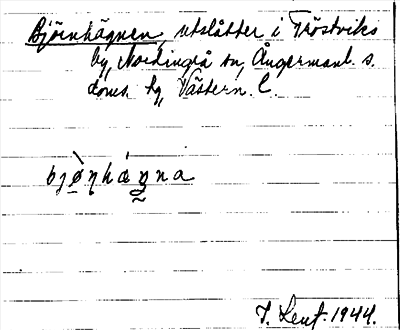 Björnhägnen, utslåtter i Tröstviks
by, Nordingrå sn, Ångermanl. s.
doms. hg, Västern. l.
bjø̀ṇhágna
J. Lent. 1944.